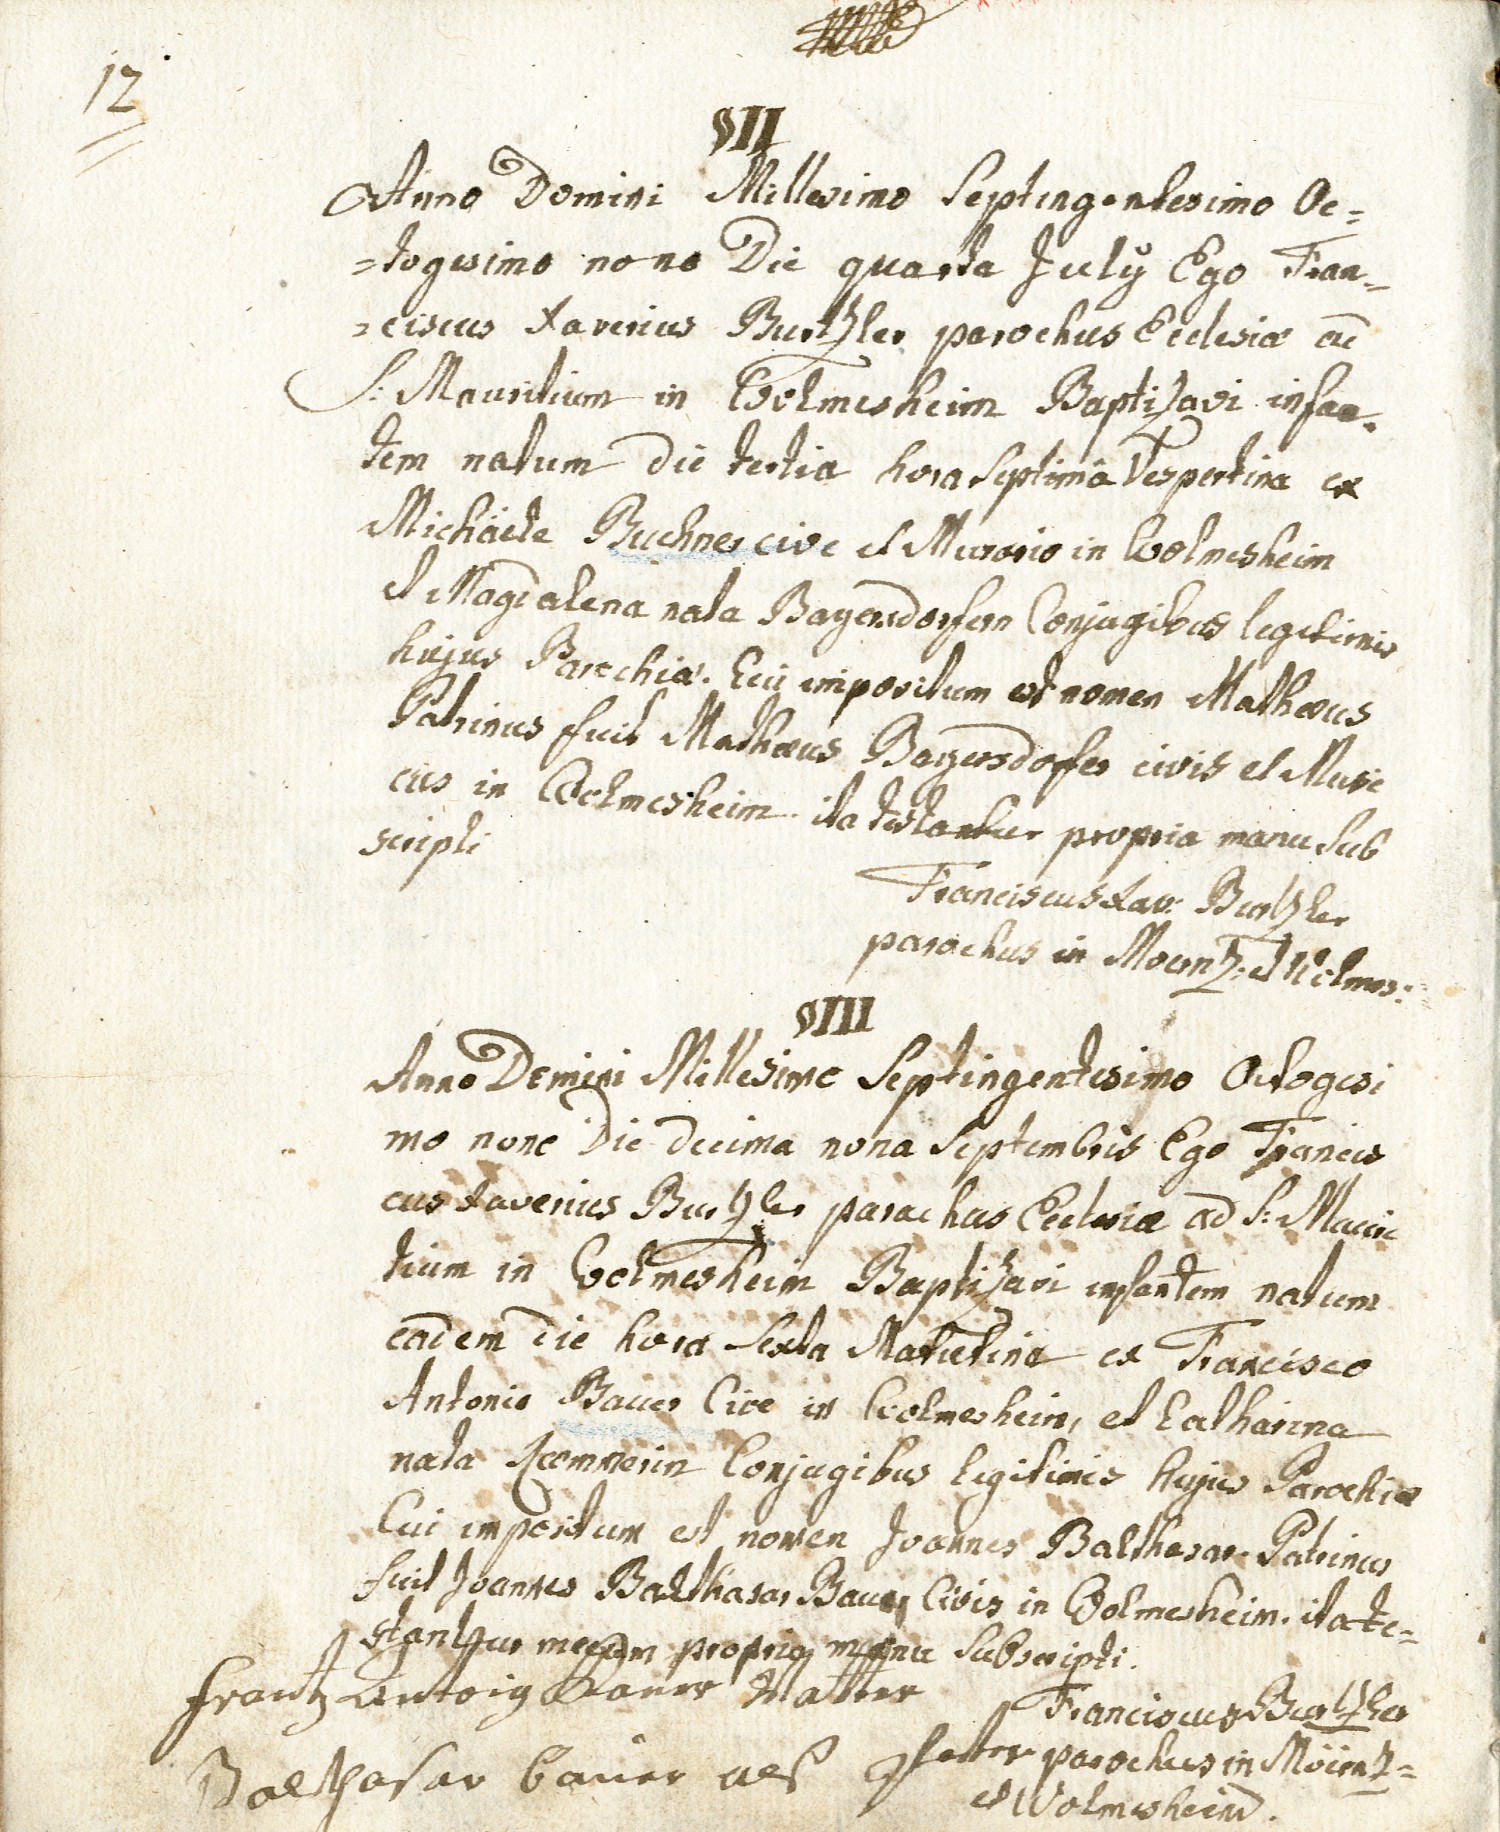 12
VII
Anno Domini Millesimo Septingentesimo Oc=
=togesimo nono Die quarta July Ego Fran=
=ciscus Xaverius Burtzler parochus Ecclesiæ ad
S: Mauritium in Wolmesheim Baptizavi infan=
tem natum die tertia hora Septima Vespertina ex
Michäele Buchner cive et Murario in Wolmesheim
et Magdalena nata Bayersdorferin Conjugibus legitimis
hujus Parochiæ. Cui impositum est nomen Mathæus
Patrinus fuit Mathæus Bayersdorfer civis et Musi
cus in Wolmesheim. ita testantur propria manu Sub
scripti
Franciscus Xav: Burtzler
parochus in Moerntz: et Wolmes:
VIII
Anno Domini Millesimo Septingentesimo Octogesi
mo nono Die decima nona Septembris Ego Francis
cus Xaverius Burtzler parochus Ecclesiæ ad S: Mauri
tium in Wolmesheim Baptizavi infantem natum
eadem die hora Sexta Matutina ex Francisco
Antonio Bauer Cive in Wolmesheim, et Catharina
nata Cive Conjugibus legitimis hujus Parochiæ
Cui impositum est nomen Joannes Balthasar. Patrinus
fuit Joannes Balthasar Bauer Civis in Wolmesheim. ita te=
stantur mecum propria manu Subscripti.
frantz antoig bauer Vatter
Franciscus Burtzler
Balthasar bauer als pfetter
parochus in Mörntz=
et Wolmesheim.